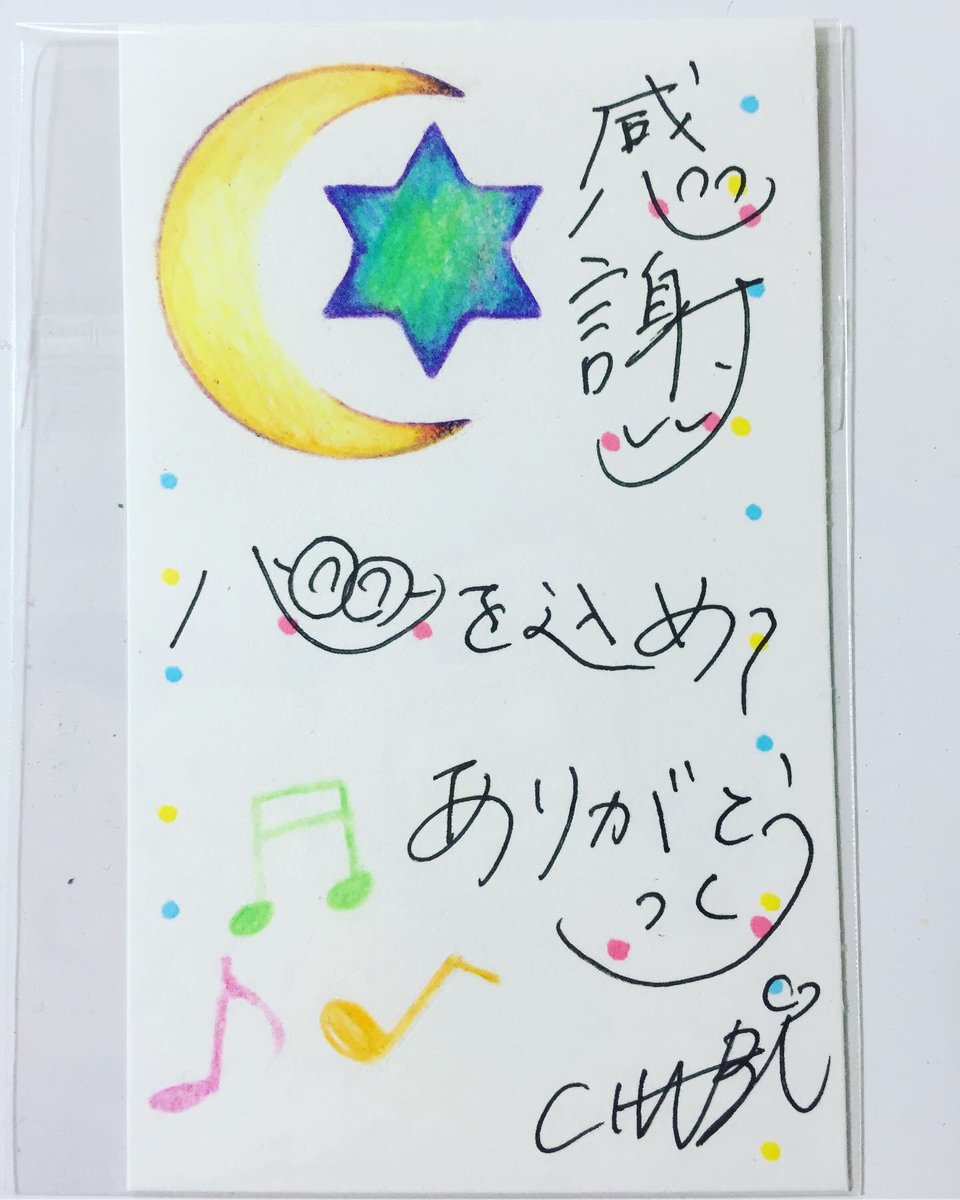 感謝
心を込めて
ありがとう